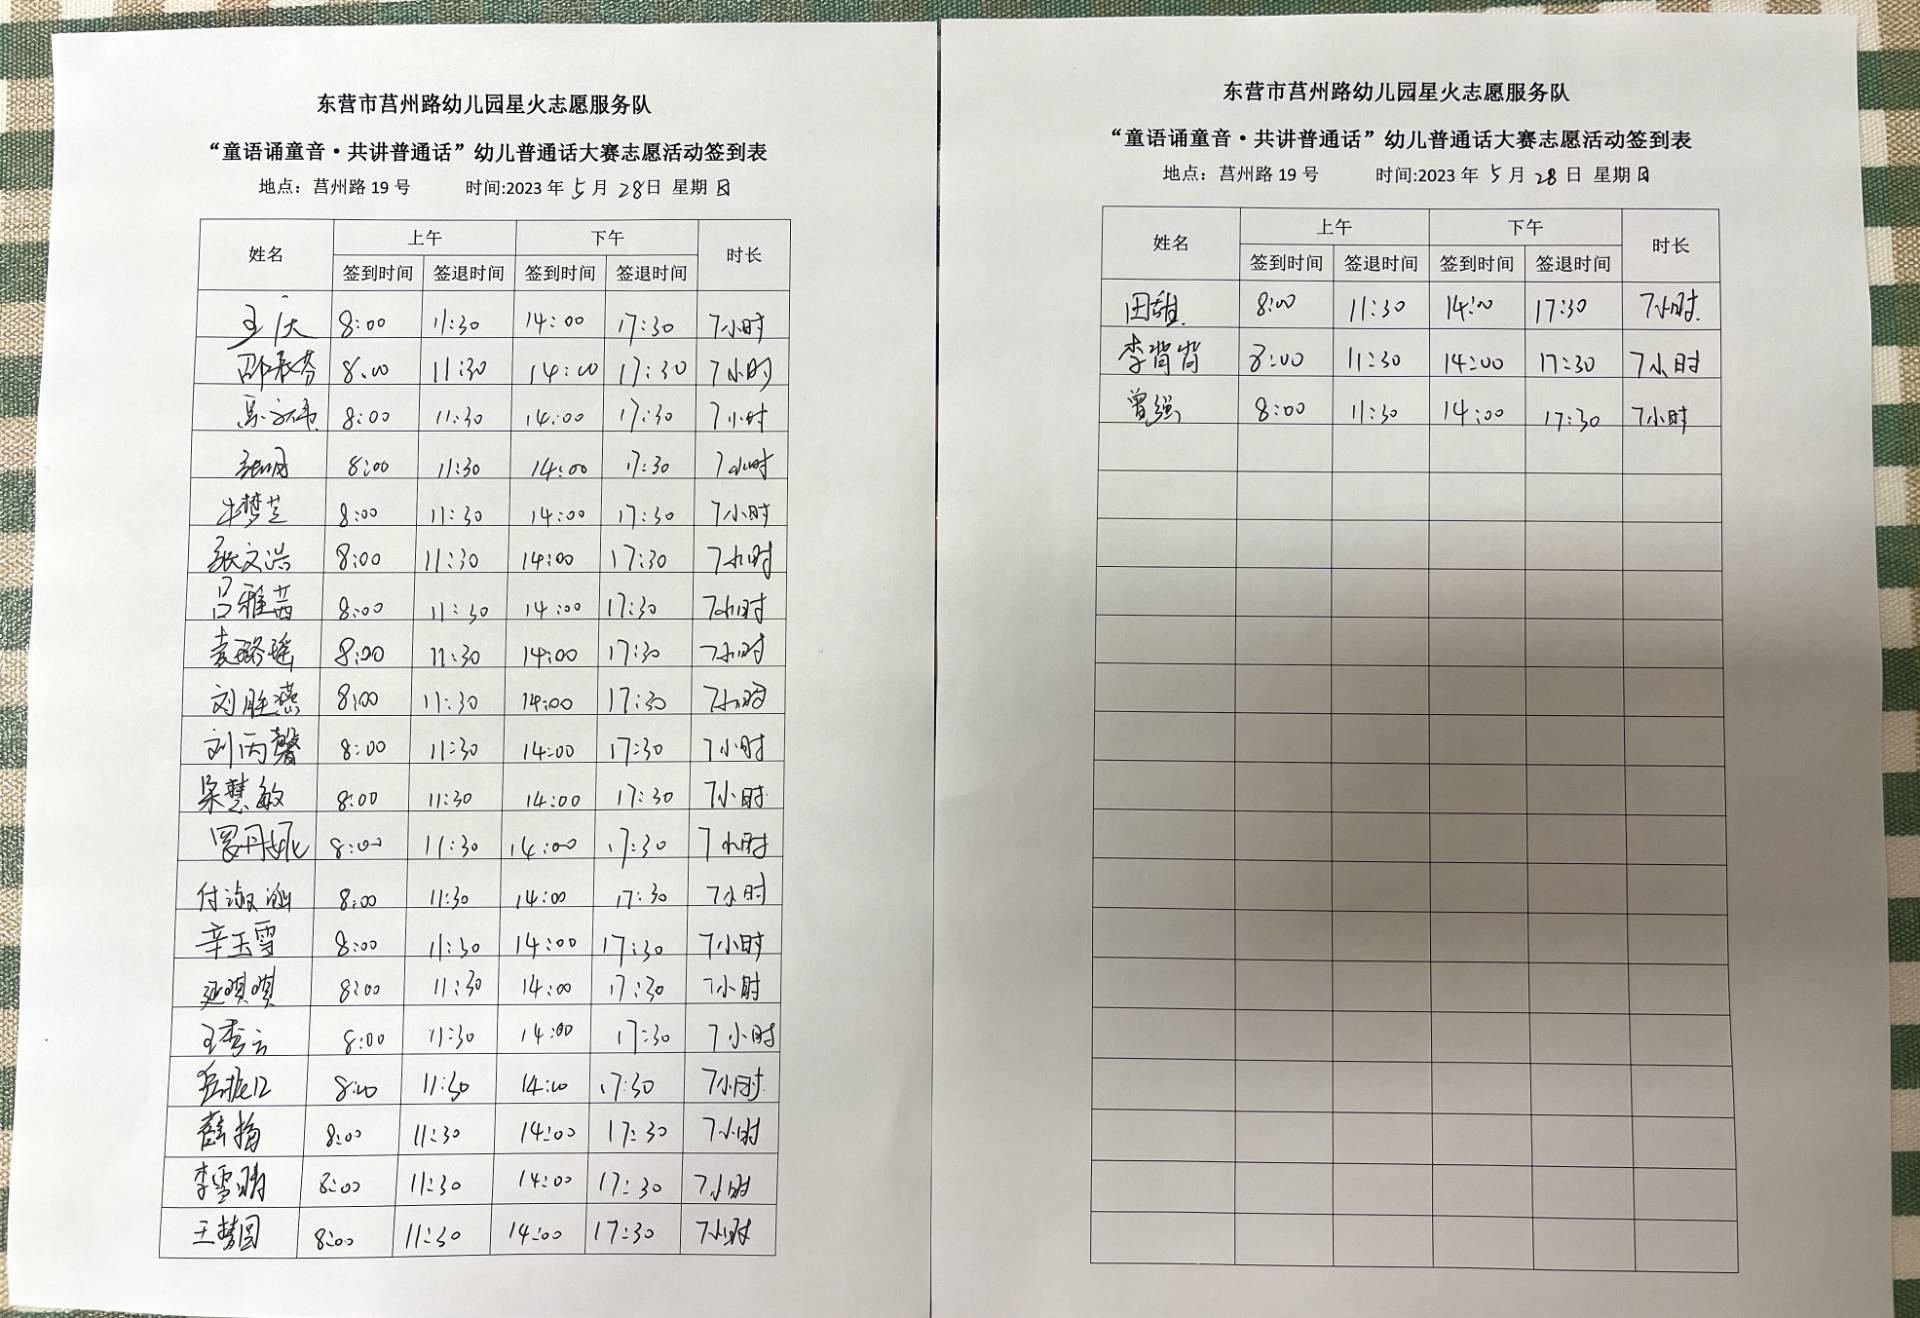 东营市莒州路幼儿园星火志愿服务队
“童语诵童音·共讲普通话”幼儿普通话大赛志愿活动签到表
地点：莒州路 19 号 时间:2023 年 5 月 28日 星期 日
姓名 上午 下午 时长
签到时间 签退时间 签到时间 签退时间
8:00 11:30 14:00 17:30 7小时
8:00 11:30 14:00 17:30 7小时
8:00 11:30 14:00 17:30 7小时
8:00 11:30 14:00 17:30 7小时
牛梦芝 8:00 11:30 14:00 17:30 7小时
张文浩 8:00 11:30 14:00 17:30 7小时
吕雅茜 8:00 11:30 14:00 17:30 7小时
袁璐瑶 8:00 11:30 14:00 17:30 7小时
刘胜燕 8:00 11:30 14:00 17:30 7小时
刘丙馨 8:00 11:30 14:00 17:30 7小时
梁慧敏 8:00 11:30 14:00 17:30 7小时
罗丹妮 8:00 11:30 14:00 17:30 7小时
付淑 8:00 11:30 14:00 17:30 7小时
辛玉雪 8:00 11:30 14:00 17:30 7小时
8:00 11:30 14:00 17:30 7小时
王秀云 8:00 11:30 14:00 17:30 7小时
8:00 11:30 14:00 17:30 7小时
薛梅 8:00 11:30 14:00 17:30 7小时
李雪晴 8:00 11:30 14:00 17:30 7小时
王梦圆 8:00 11:30 14:00 17:30 7小时
东营市莒州路幼儿园星火志愿服务队
“童语诵童音·共讲普通话”幼儿普通话大赛志愿活动签到表
地点：莒州路 19 号 时间:2023 年 5 月 28 日 星期 日
姓名 上午 下午 时长
签到时间 签退时间 签到时间 签退时间
田甜 8:00 11:30 14:00 17:30 7小时
李 8:00 11:30 14:00 17:30 7小时
曾强 8:00 11:30 14:00 17:30 7小时